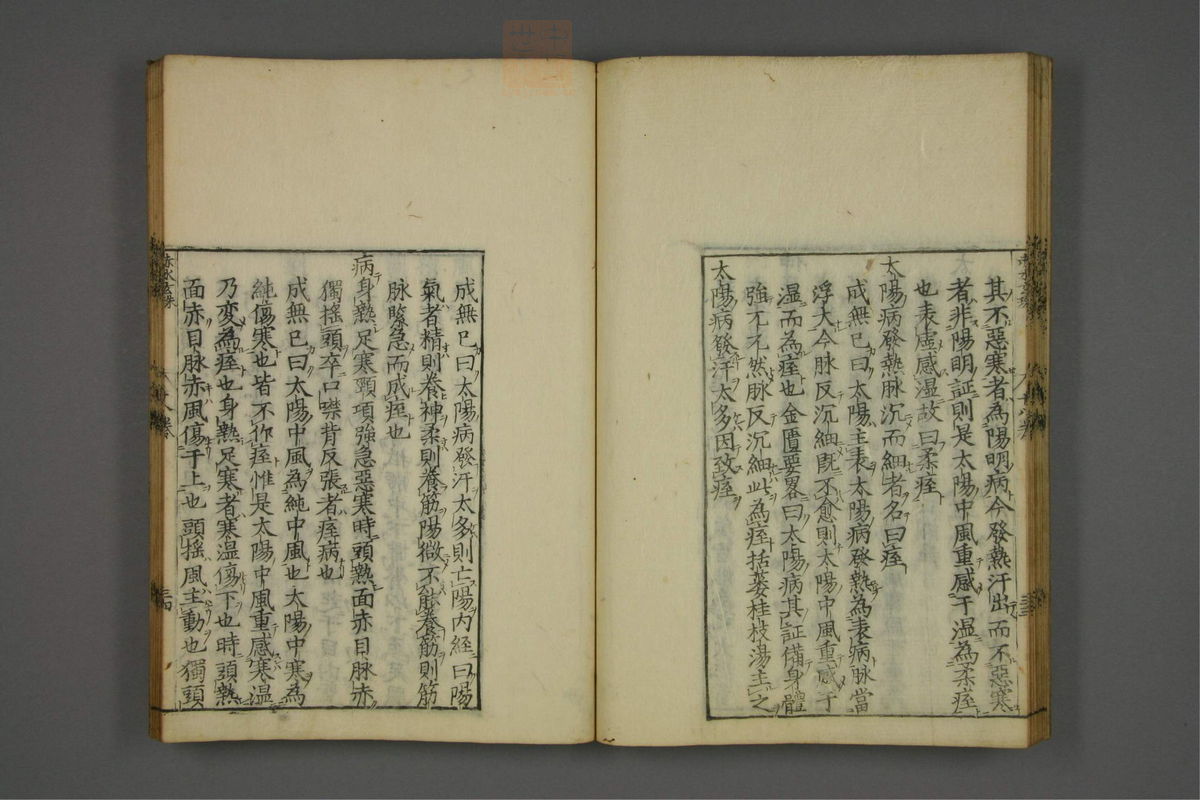 其不惡寒者為陽明病今發熱汗出而不惡寒
者非陽明証則是太陽中風重感于湿為柔痓
也表虚感湿故曰柔痓
太陽病發熱脉沉而細者名曰痓
成無已曰太陽主表太陽病發熱為表病脉當
浮大今脉反沉細既不愈則太陽中風重感于
湿而為痓也金匱要畧曰太陽病其証備身體
強兀兀然脉反沉細此為痓括蔞桂枝湯主之
太陽病發汗太多因致痓
成無已曰太陽病發汗太多則亡陽内経曰陽
氣者精則養神柔則養筋陽微不能養筋則筋
脉緊急而成痓也
病身熱足寒頸項強急惡寒時頭熱面赤目脉赤
獨摇頭卒口噤背反張者痓病也
成無已曰太陽中風為純中風也太陽中寒為
純傷寒也皆不作痓惟是太陽中風重感寒湿
乃変為痓也身熱足寒者寒湿傷下也時頭熱
面赤目脉赤風傷于上也頭摇風主動也獨頭